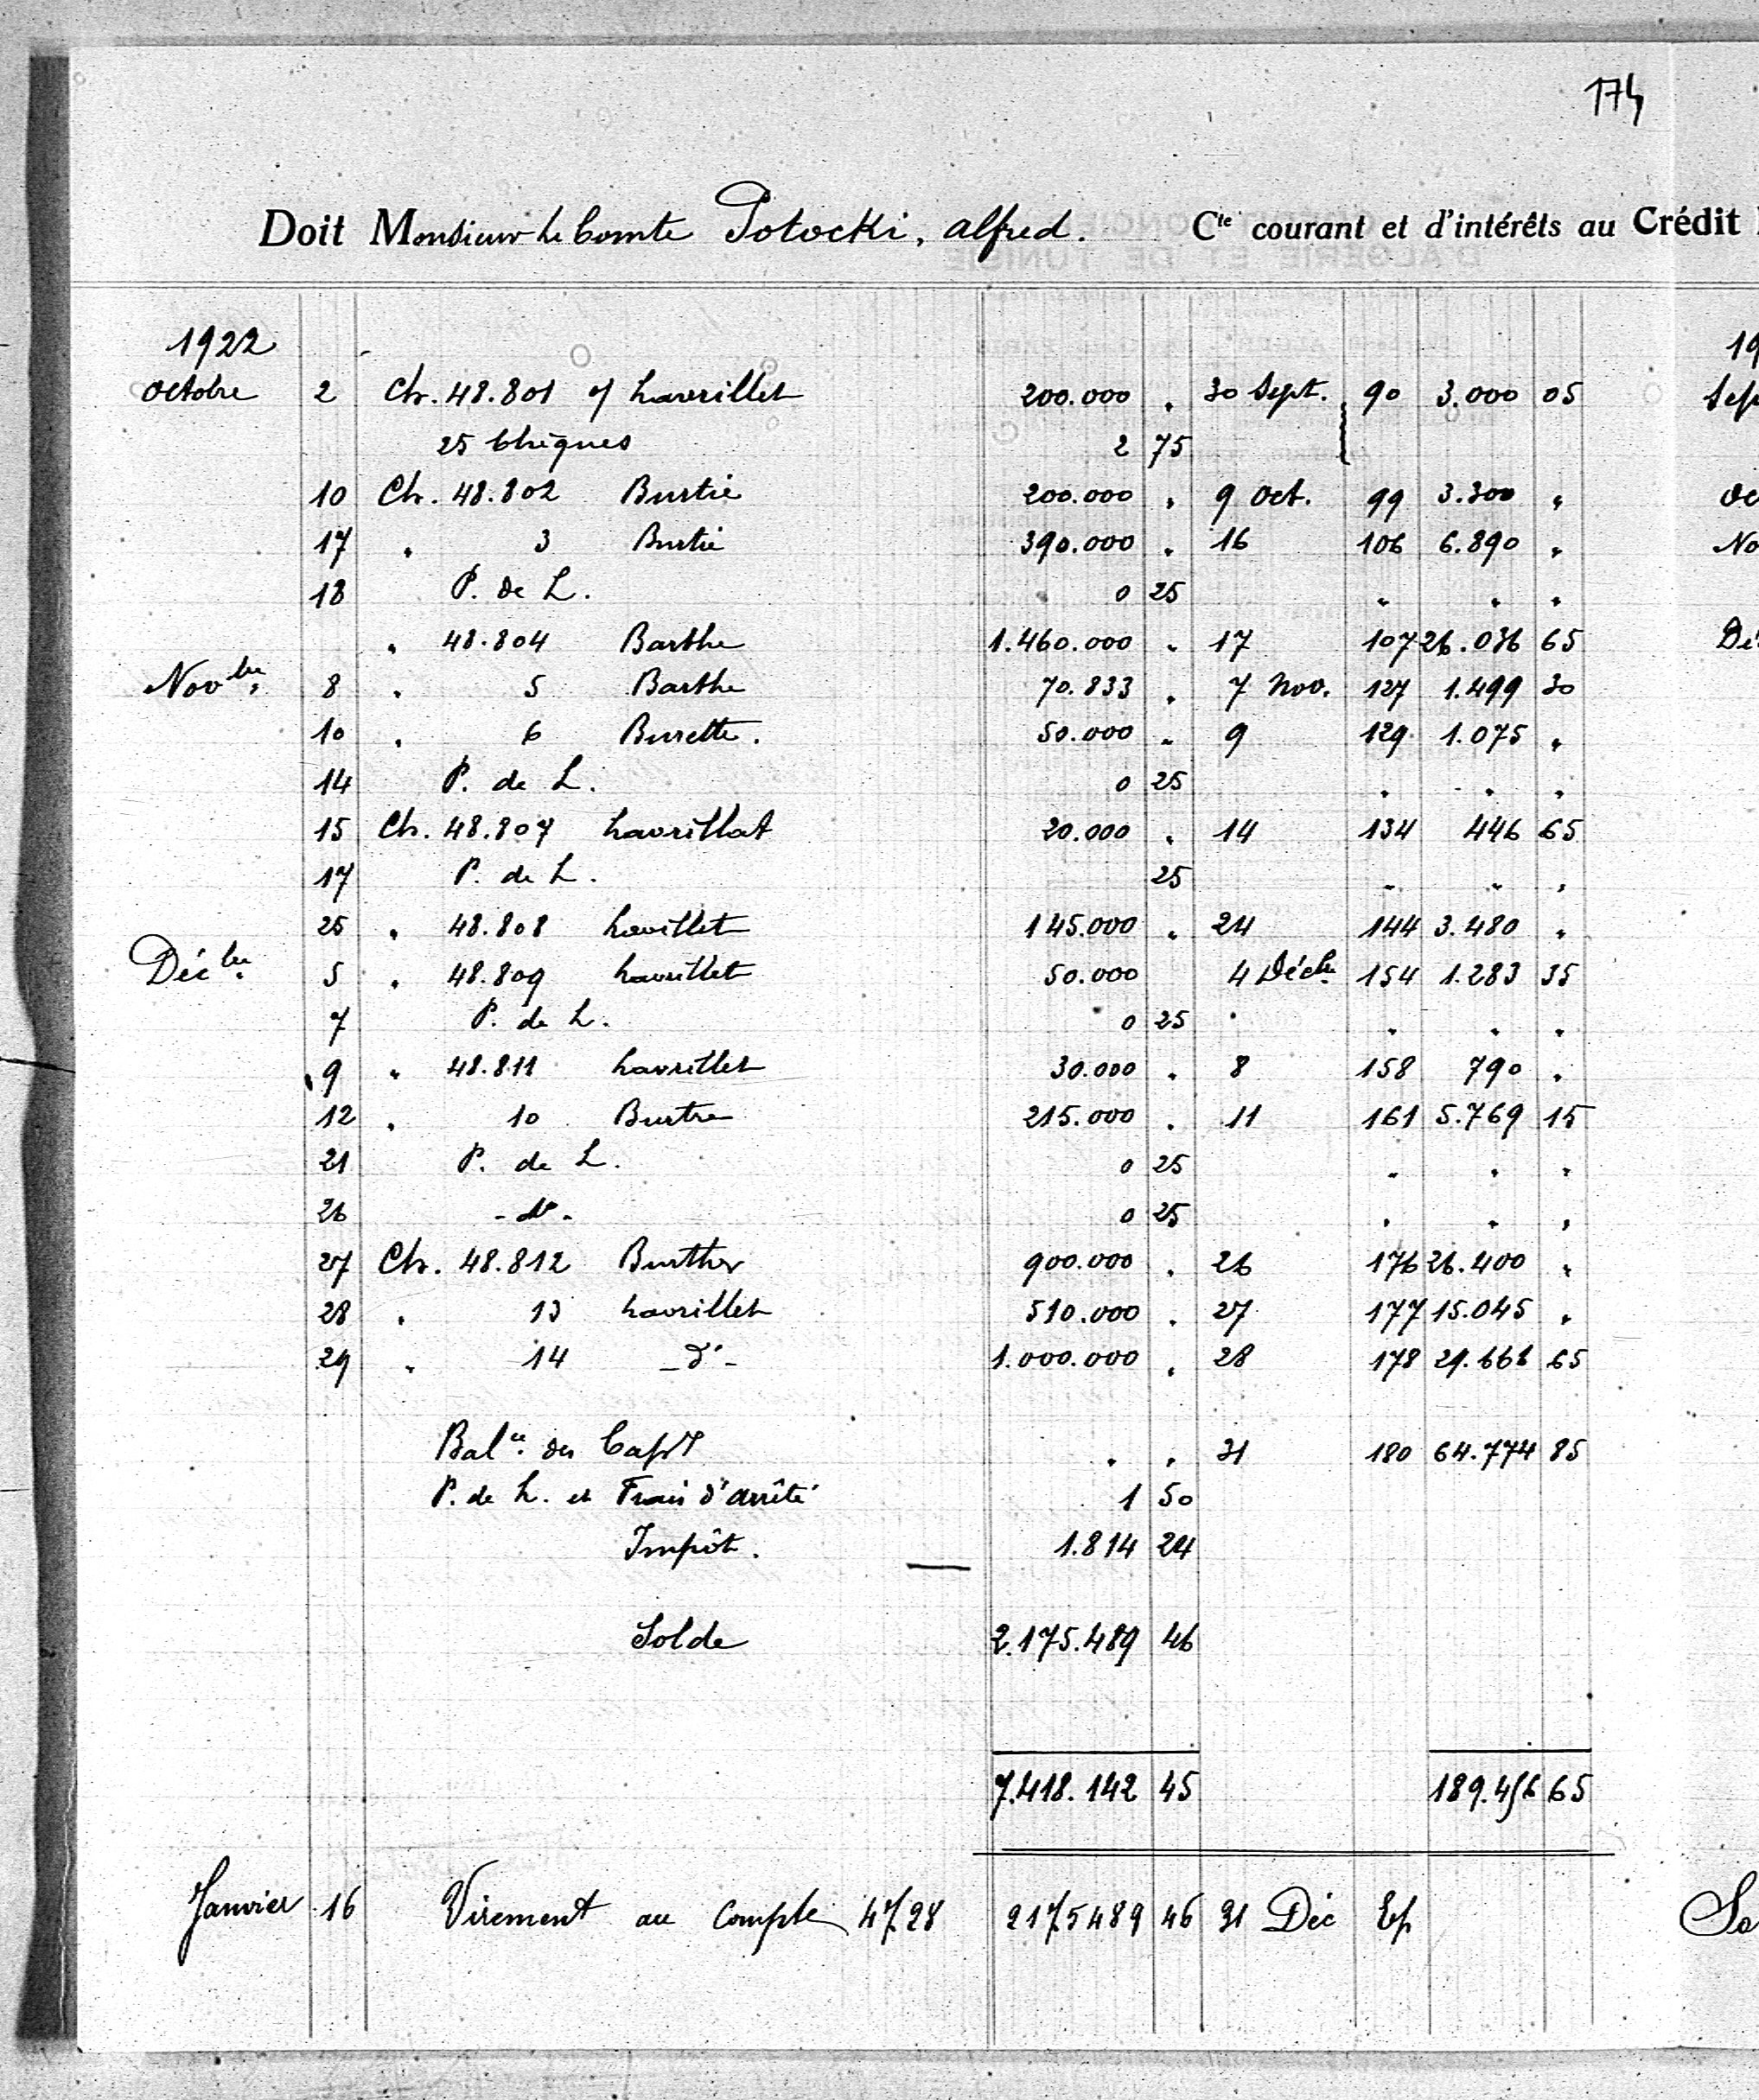 174
Doit Monsieur le Comte Potocki, Alfred. Cte courant et d'intérêts au Crédit
1922
Octobre 2 Ch. 48.801 Lavrillet 200.000 " 30 Sept. 90 3.000 05
25 Chèques 2 75
10 Ch. 48.802 Burtie 200.000 " 9 Oct. 99 3.300 "
17 " 3 Burtie 390.000 " 16 106 6.890 "
18 P. de L. 0 25 " " "
" 48.804 Barthe 1.460.000 " 17 107 26.036 65
Novbre 8 " 5 Barthe 70.833 " 7 Nov. 127 1.499 30
10 " 6 Burette. 50.000 " 9 129 1.075 "
14 P. de L. 0 25 " " "
15 Ch. 48.807 Lavrillat 20.000 " 14 134 446 65
17 P. de L. 25 " " "
25 " 48.808 Lavillet 145.000 " 24 144 3.480 "
Décbre 5 " 48.809 Lavrillet 50.000 4 Décbre 154 1.283 35
7 P. de L. 0 25 " " "
9 " 48.811 Lavrillet 30.000 " 8 158 790 "
12 " 10 Burtre 215.000 " 11 161 5.769 15
21 P. de L. 0 25 " " "
26 - do - 0 25 " " "
27 Ch. 48.812 Burther 900.000 " 26 176 26.400 "
28 " 13 Lavrillet 510.000 " 27 177 15.045 "
29 " 14 - do - 1.000.000 " 28 178 29.666 65
Balce des Capx " " 31 180 64.774 85
P. de L. et Frais d'arrêté 1 50
Impôt. 1.814 24
Solde 2.175.489 46
7.418.142 45 189.456 65
Janvier 16 Virement au compte 4728 2175489 46 31 Déc Ep